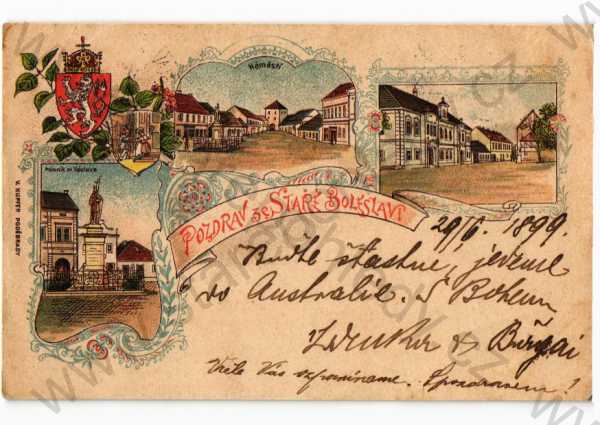 Náměstí
Pomník sv. Václava
POZDRAV ZE STARÉ BOLESLAVI
V. KUPFER PODĚBRADY
29/6. 1899.
Buďte šťastni, jedeme
do Australie. S Bohem
Zdenka &
Vřele Vás vzpomínáme. S pozdravem!